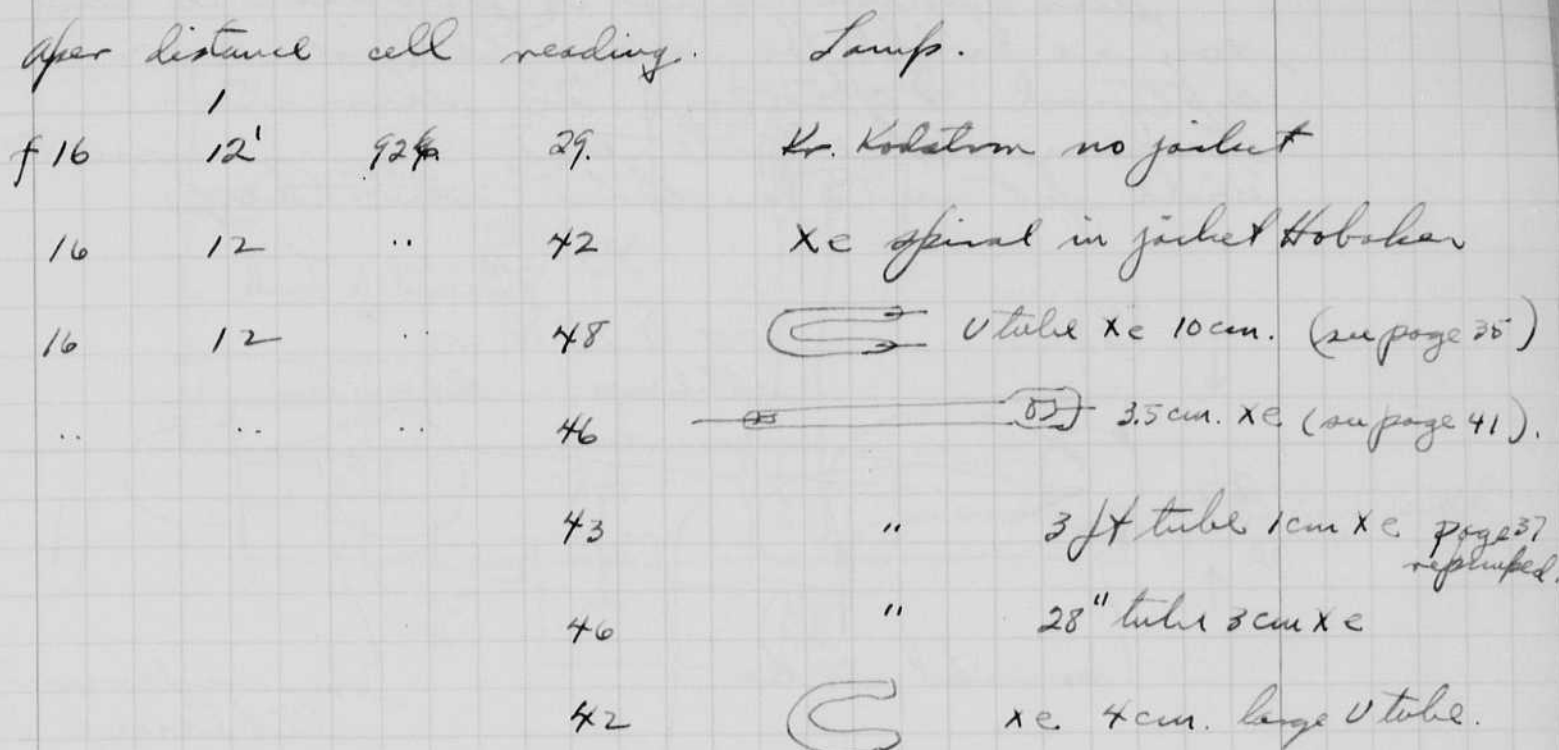 aper distance cell reading. Lamp.
f 16 12' 29. Kr. Kodatron no jacket
16 12 .. 42 Xe spiral in jacket Hoboken
16 12 .. 48 U tube Xe 10 cm. (see page 35)
.. .. .. 46 3.5 cm. Xe (see page 41).
43 " 3 ft tube 1 cm Xe page 37
repumped.
46 " 28" tube 3 cm Xe
42 Xe 4 cm. large U tube.